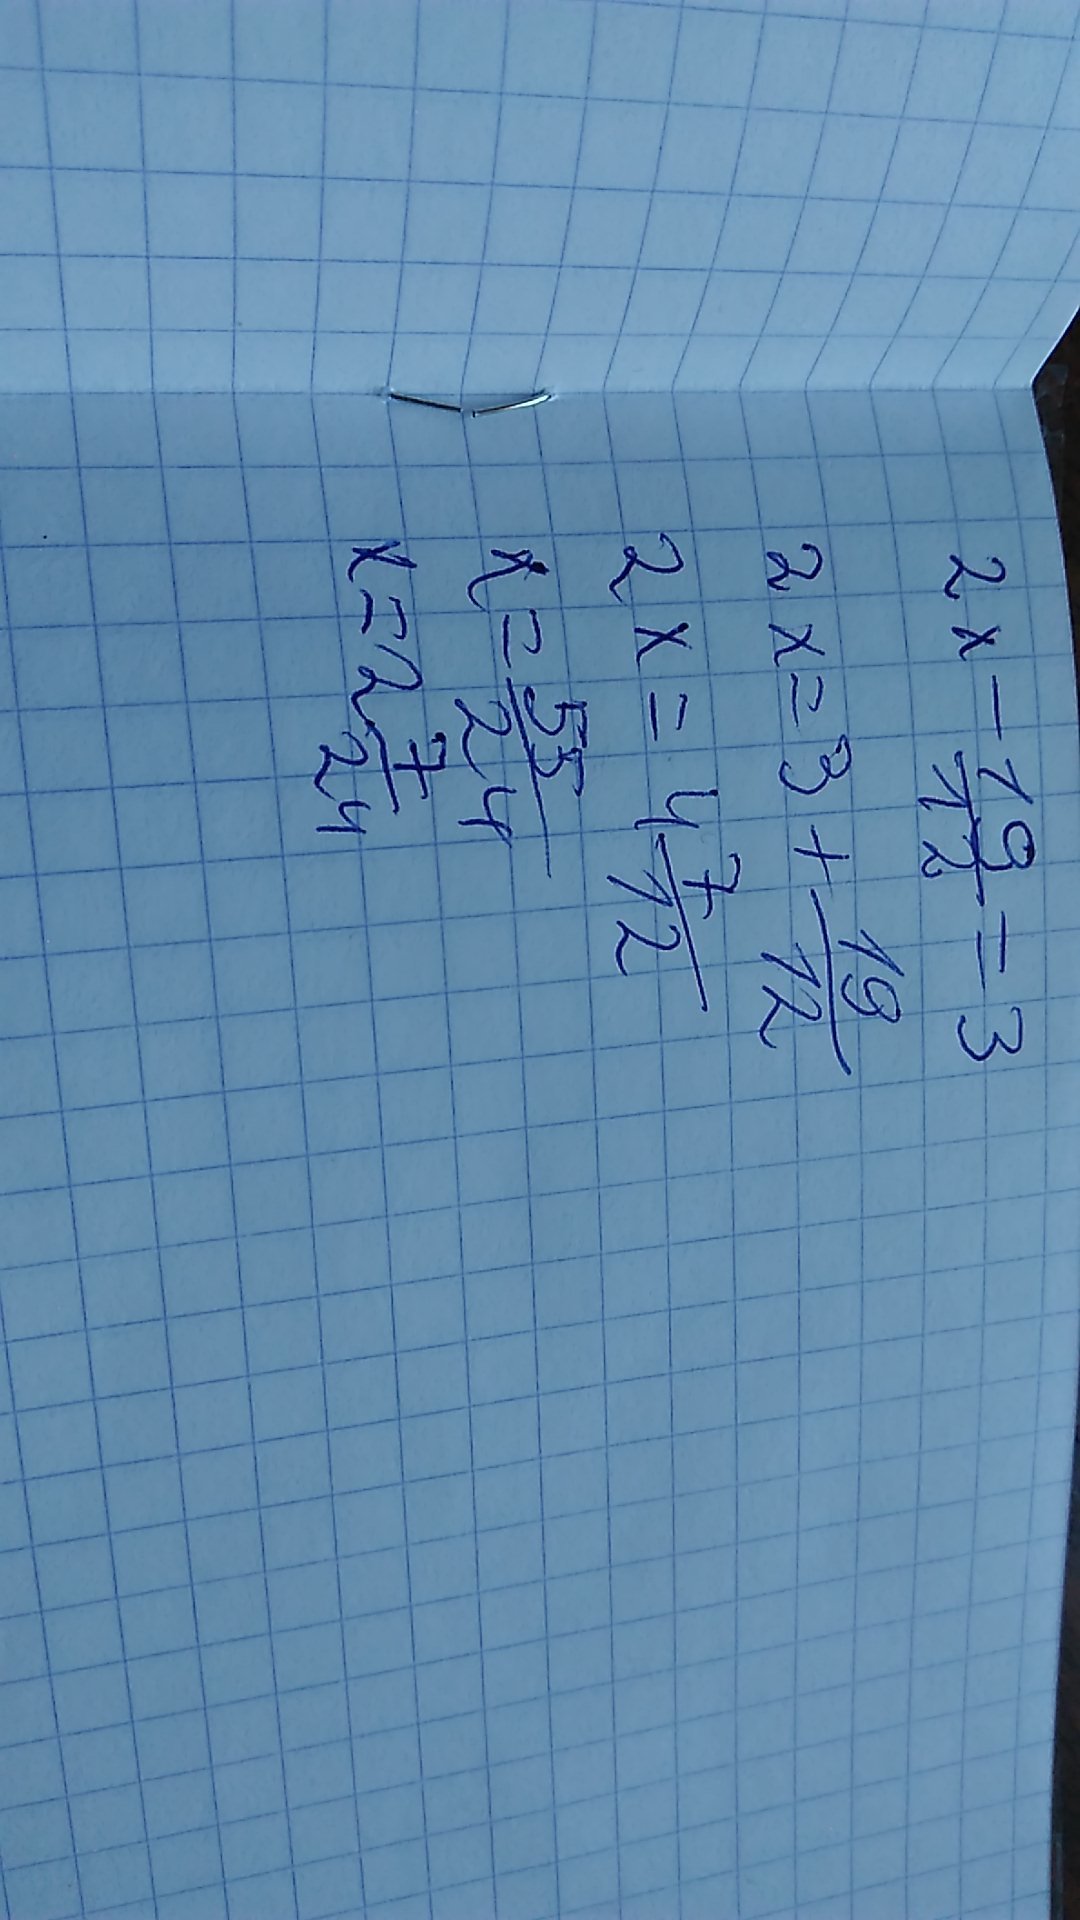 2x - 19/12 = 3
2x = 3 + 19/12
2x = 4 7/12
x = 55/24
x = 2 7/24